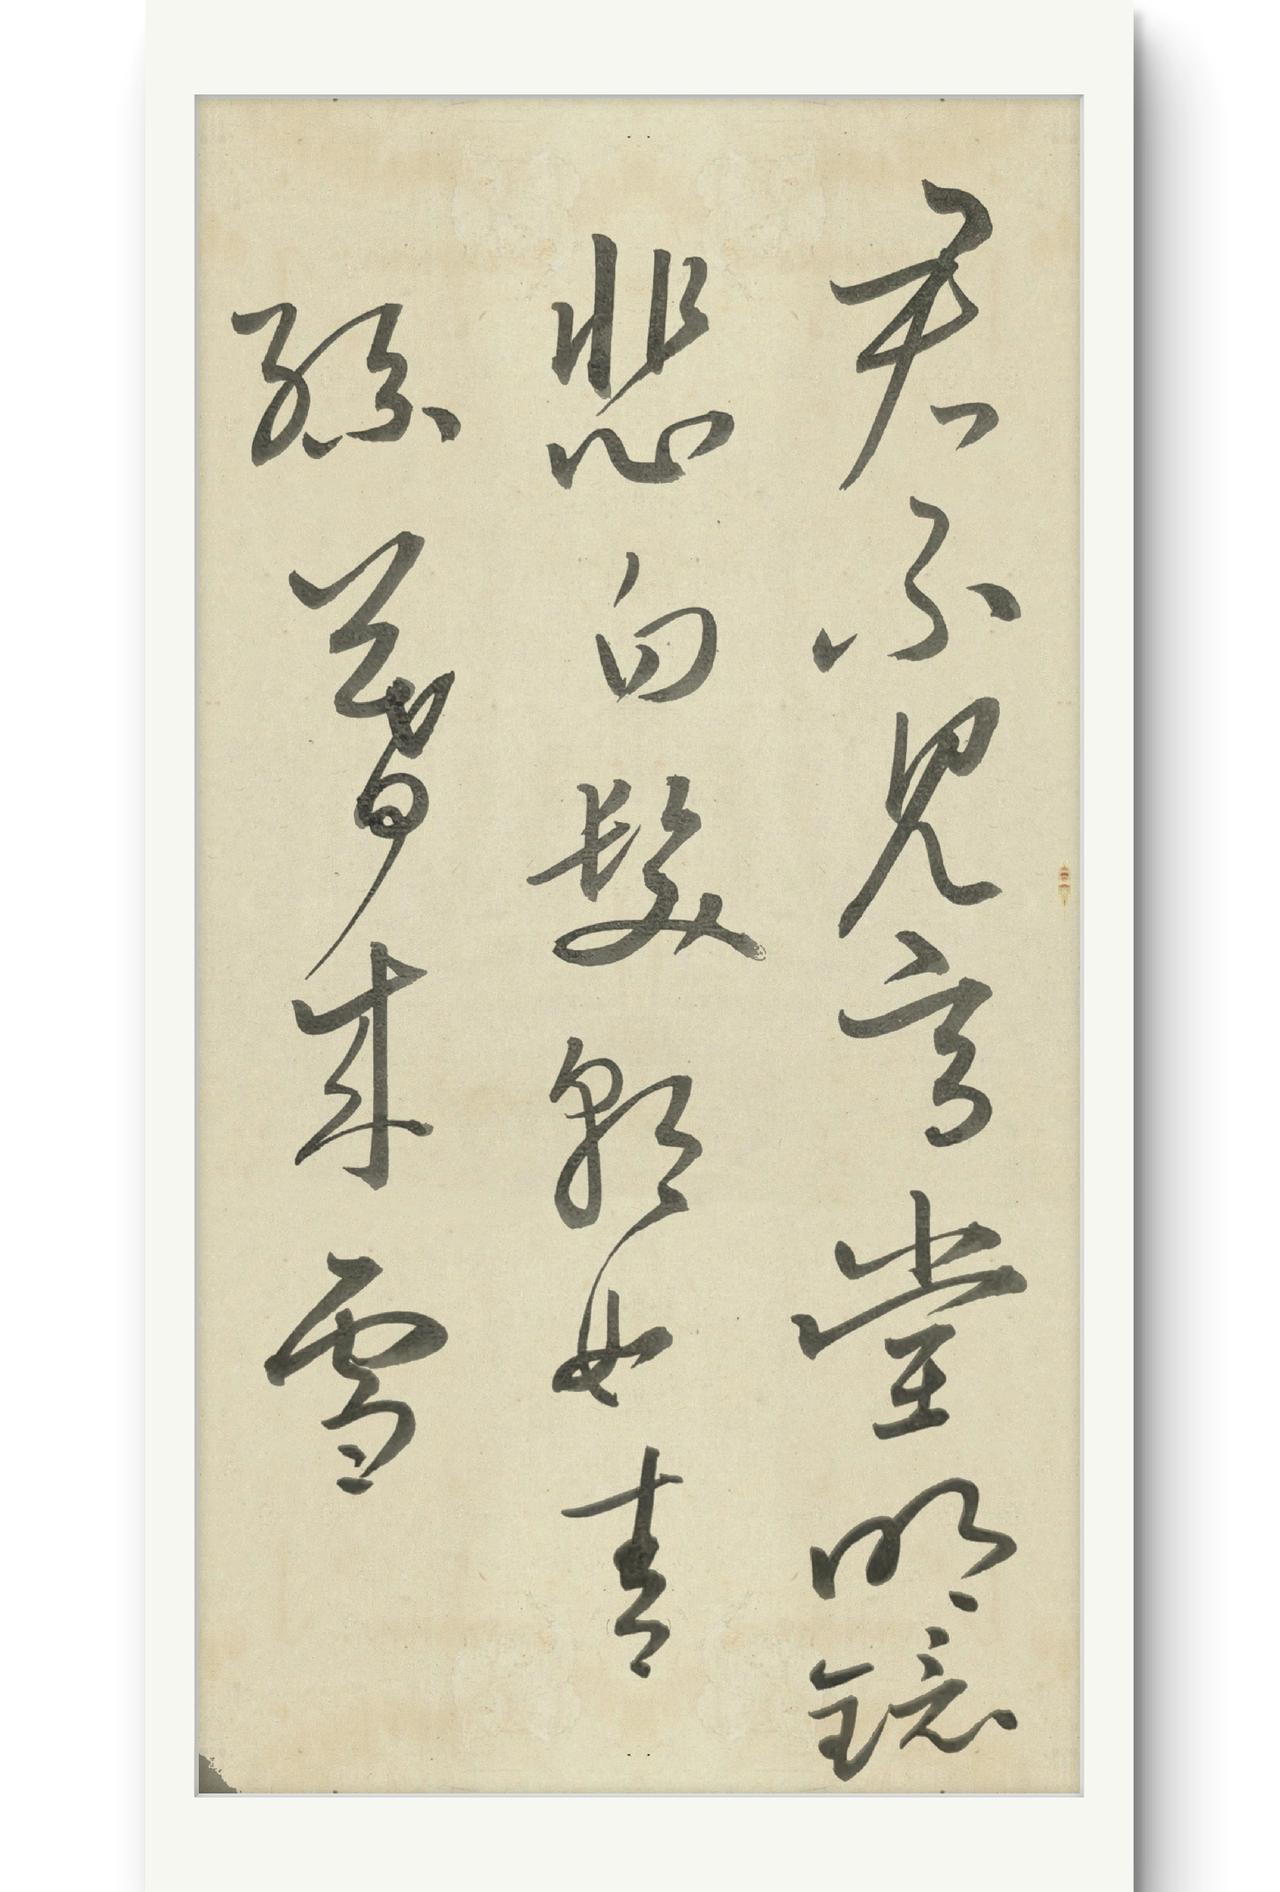 君不見高堂明鏡
悲白髮朝如青
絲暮成雪